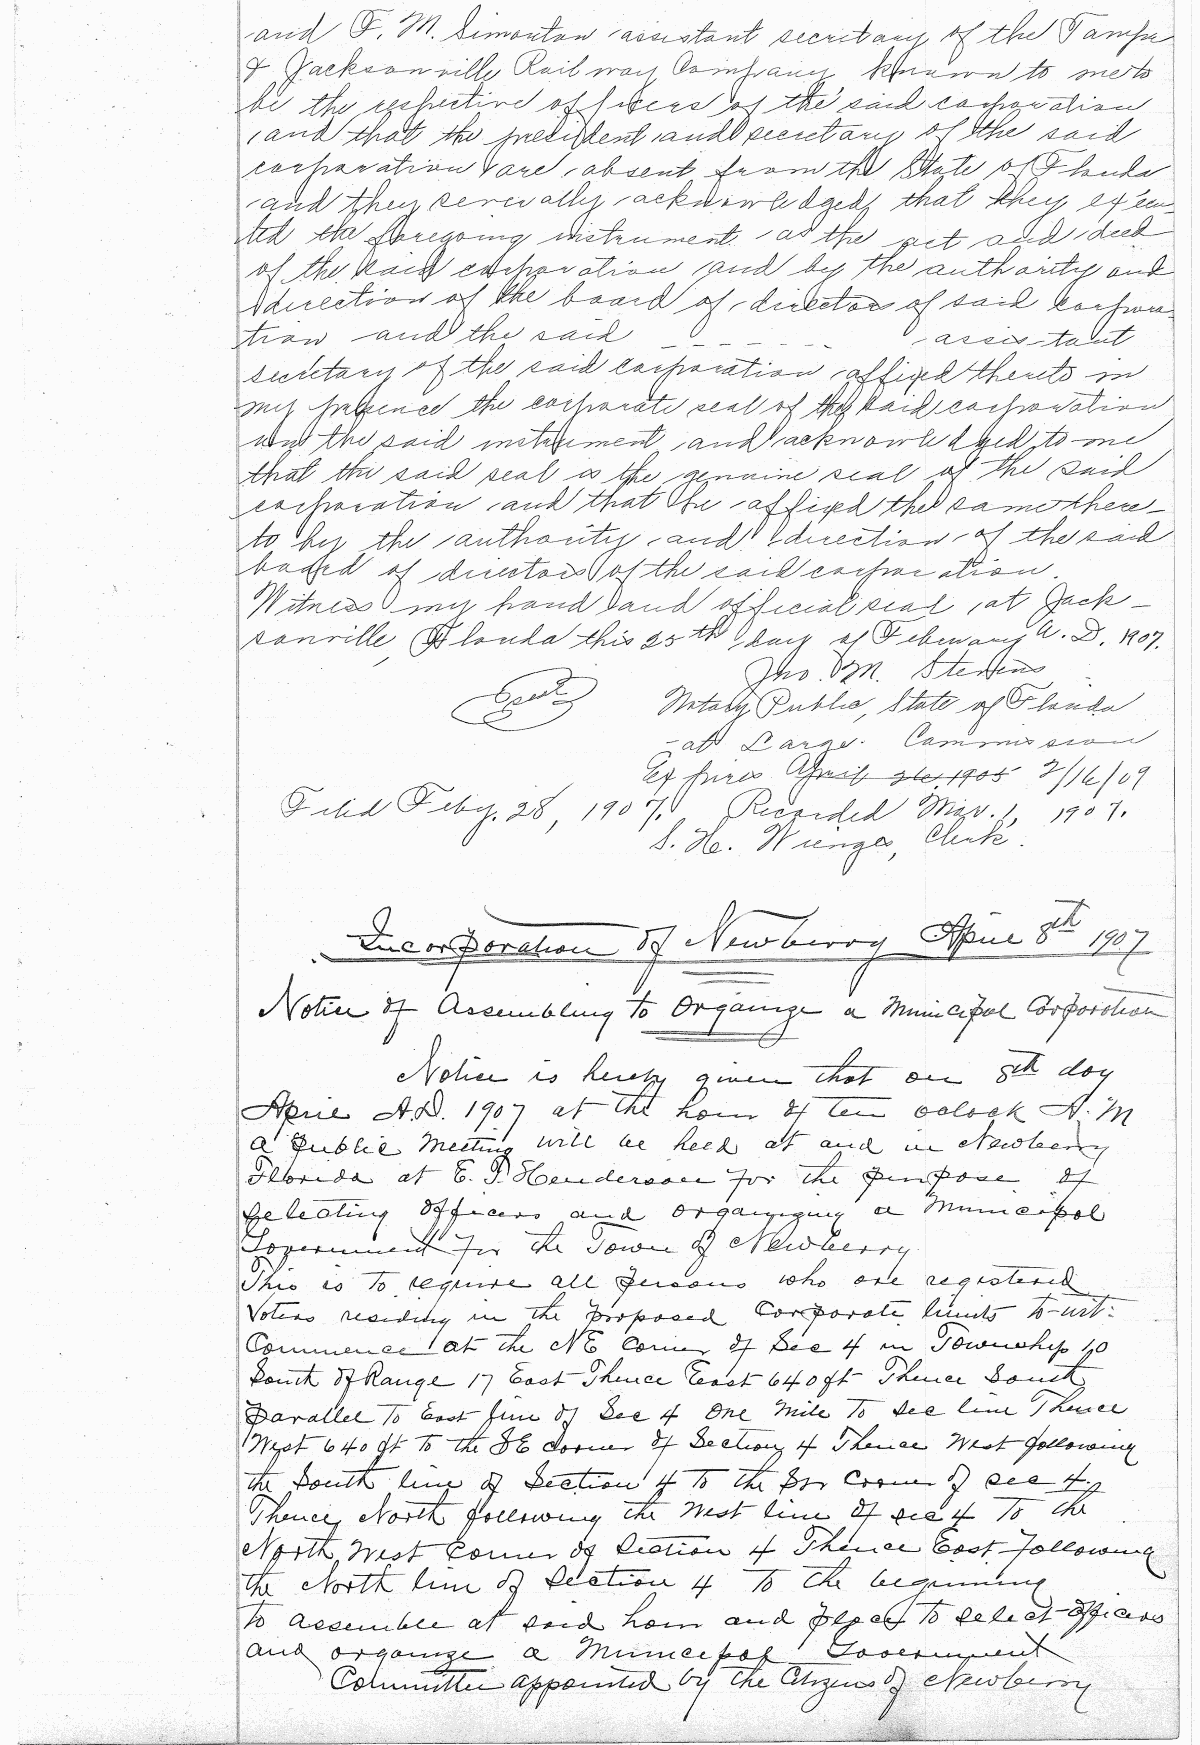 and F. M. Simonton assistant secretary of the Tampa
& Jacksonville Railway Company known to me to
be the respective officers of the said corporation
and that the president and secretary of the said
corporation are absent from the State of Florida
and they serverally acknowledged that they execu-
ted the foregoing instrument as the act and deed
of the said corporation and by the authority and
direction of the board of directors of said corpora-
tion and the said - - - - - - assistant
secretary of the said corporation affixed thereto in
my presence the corporate seal of the said corporation
and the said instrument and acknowledged to me
that the said seal is the genuine seal of the said
corporation and that he affixed the same there-
to by the authority and direction of the said
board of directors of the said corporation.
Witness my hand and official seal at Jack-
sonville, Florida this 25th day of February A. D. 1907.
Jno. M. Stevens
Seal Notary Public, State of Florida
at Large. Commission
Expires April 26, 1905 2/16/09
Filed Feby. 28, 1907. Recorded Mar. 1, 1907.
S. H. Wienges, Clerk.
Incorporation of Newberry April 8th 1907
Notice of Assembling to Organize a Municipal Corporation
Notice is hereby given that on 8th day
April A.D. 1907 at the hour of ten oclock A.M
a public Meeting will be held at and in Newberry
Florida at E. P. Henderson for the purpose of
Selecting officers and organizing a Municipal
Government for the Town of Newberry
This is to require all persons who are registered
Voters residing in the proposed Corporate limits to-wit:
Commence at the NE Corner of Sec 4 in Township 10
South of Range 17 East Thence East 640 ft Thence South
parallel to East line of Sec 4 One Mile to sec line Thence
West 640 ft to the SE corner of Section 4 Thence West following
the South line of Section 4 to the SW Corner of sec 4.
Thence North following the West line of sec 4 to the
North West Corner of Section 4 Thence East following
the North line of Section 4 to the beginning
to assemble at said hour and place to select officers
and organize a Municipal Government
Committee appointed by the Citizens of Newberry